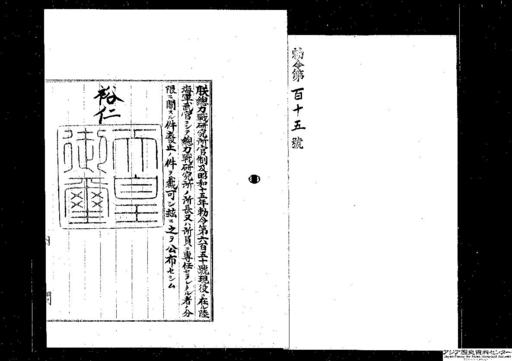 勅令第百十五號
朕總力戰研究所官制及昭和十五年勅令第六百五十號現役ニ在ル陸
海軍武官ニシテ總力戰研究所ノ所長又ハ所員ニ專任セラレタル者ノ分
限ニ關スル件廢止ノ件ヲ裁可シ茲ニ之ヲ公布セシム
裕仁
天皇
御璽
内閣
アジア歴史資料センター
Japan Center for Asian Historical Records